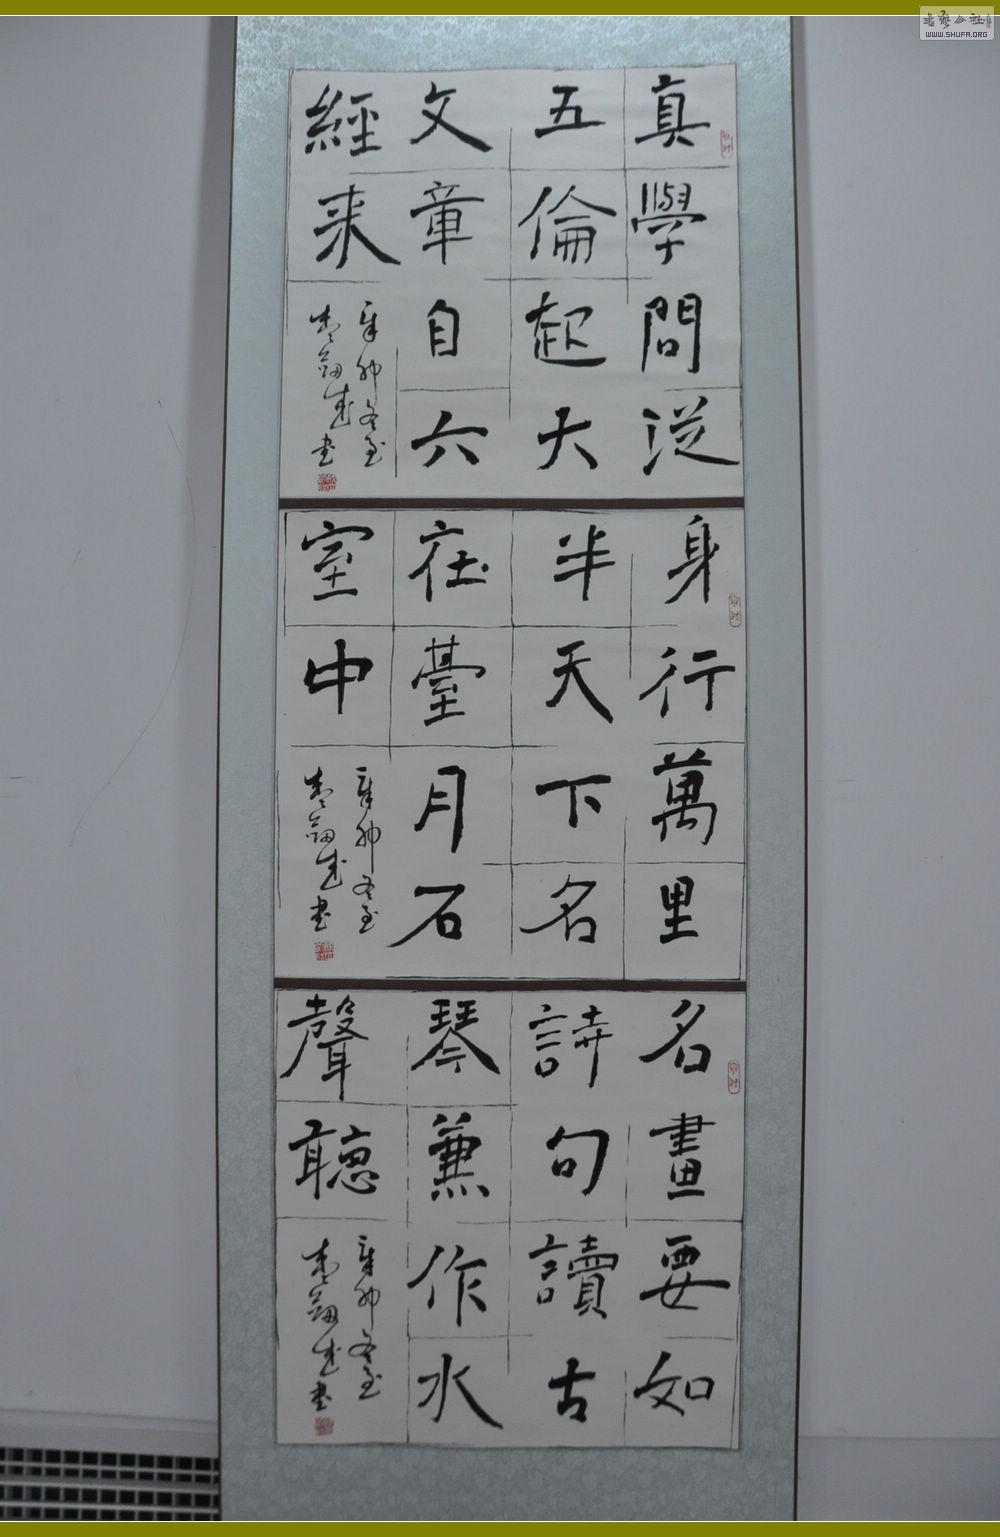 真學問從
五倫起大
文章自六
經来
辛卯冬至
書
身行萬里
半天下名
在臺月石
室中
辛卯冬至
書
名畫要如
詩句讀古
琴兼作水
聲聽
辛卯冬至
書
WWW.SHUFA.ORG